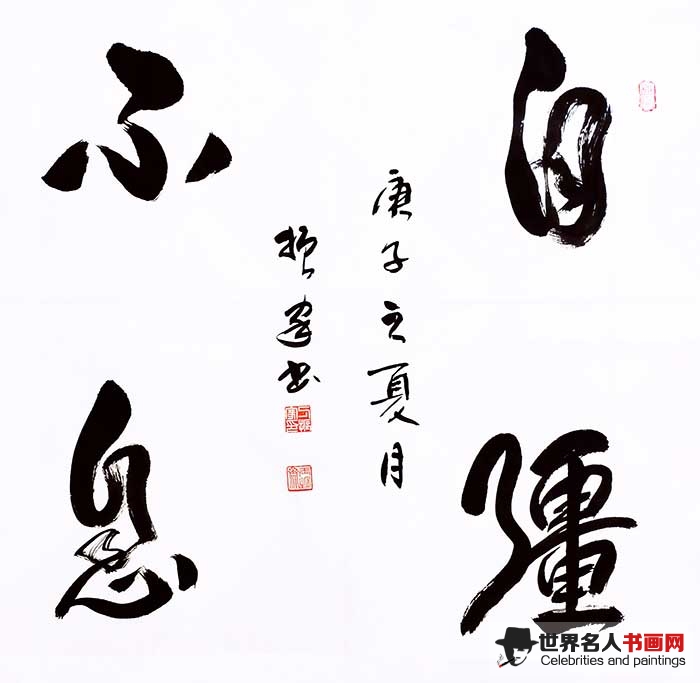 自彊
不息
庚子之夏月
振书
世界名人书画网
Celebrities and paintings